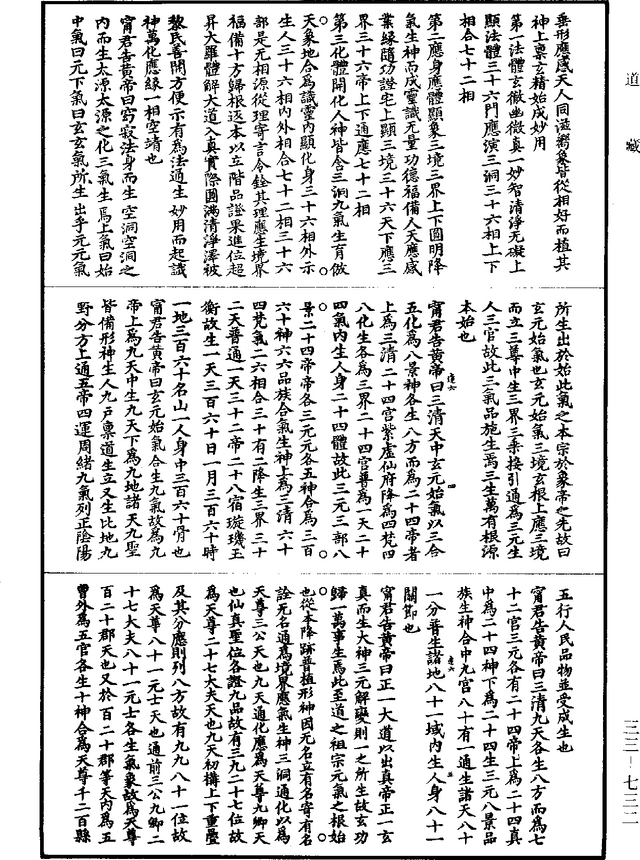 道藏
垂形應感天人同滋嚮象皆從相好而植其
神上稟玄精始成妙用
第一法體玄微幽微真一妙智清淨无礙上
顯法體三十六門應演三洞三十六相上下
相合七十二相
第二應身應體顯象三境三界上下圓明降
氣生神而成靈識无量功德福備人天應感
業緣隨功證宅上顯三境三十六天下應三
界三十六帝上下通應七十二相
第三化體開化人神皆含三洞九氣生育倣
天象地合爲識靈内顯化身三十六相外示
生人三十六相内外相合七十二相三十六
部是元相源從理寄言令銓其理應生境界
福備十方歸根返本以立階品證果進位超
昇大羅體解大道入真實際圓滿清淨澤被
黎民善開方便示有爲法通生妙用而起識
神萬化應緣一相空靖也
甯君告黃帝曰窈寂法身而生空洞空洞之
内而生太源太源之化三氣生焉上氣曰始
中氣曰元下氣曰玄玄氣所生出乎元元氣
所生出於始此氣之本宗於象帝之先故曰
玄元始氣也玄元始氣三境玄根上應三境
而立三尊中生三界三乘接引通爲三元生
人三官故此三氣品施生焉三生萬有根源
本始也
甯君告黃帝曰三清天中玄元始氣以三合
五化爲八景神各生八方而爲二十四帝者
上爲三清二十四宫紫虛仙府降爲四梵四
八化生各爲三界二十四宫普爲一天二十
四氣内生人身二十四體故此三元三部八
景二十四帝帝各三元元各五神合爲三百
六十神六六品族合氣生神上爲三清六十
四梵氣二六相合三十有二降生三界三十
二天普通一天三十二帝二十八宿璇璣玉
衡故生一天三百六十日一月三百六十時
一地三百六十名山一人身中三百六十骨也
甯君告黃帝曰玄元始氣合生九氣故爲九
帝上爲九天中生九天下爲九地諸天九聖
皆備形神生人九戸稟道生立又生比地九
野分方上通五帝四運周緒九氣列正陰陽
五行人民品物並受成生也
甯君告黃帝曰三清九天各生八方而爲七
十二官三元各有二十四帝上爲二十四真
中爲二十四神下爲二十四生三元八景品
族生神合中九宫八十有一通生諸天八十
一分普生諸地八十一域内生人身八十一
關節也
甯君告黃帝曰正一大道以出真帝正一玄
真而生大神三元解變則一之所生故玄功
歸一萬事生焉此至道之祖宗元氣之根始
也從本降跡普植形神因元名立有名寄有名
詮无名通爲境界應氣生神三洞通化以爲
天尊三公天也九天通化應爲天尊九卿天
也仙真聖位各證九品故有三九二十七位故
爲天尊二十七大夫天也九天初構上下重疊
及其分應則列八方故有九九八十一位故
爲天尊八十一元士天也通前三公九卿二
十七大夫八十一元士各生氣象故爲天尊
百二十郡天也又於百二十郡等天内爲五
曹外爲五官各生十神合爲天尊千二百縣
三三－七三二